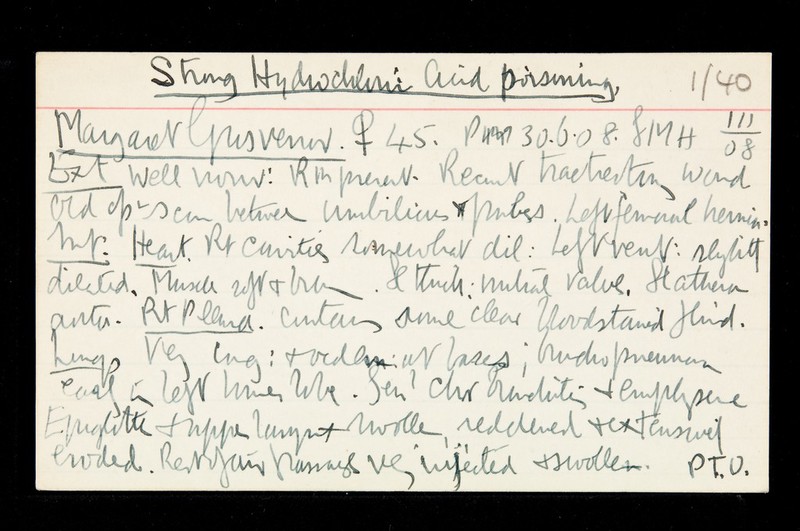 Strong Hydrochloric Acid poisoning. 1/40
Margaret Grosvenor. ♀ 45. 30.6.08. 111/08
Ext Well nour: R m present. Recent tracheotomy wound
Old opn scar between umbilicus & pubes. Left femoral hernia.
Int. Heart. Rt cavities somewhat dil: Left vent: slightly
dilated. Muscle soft & brown. Sl thick: mitral valve. Sl atheroma
aorta. Rt Pleura. contains some clear bloodstained fluid.
Lungs Very cong: & oedem: at bases; bronchopneumonia
early in left lower lobe. Genl Chr bronchitis & emphysema
Epiglottis & upper larynx swollen, reddened & extensively
eroded. Rest of air passages very injected & swollen. P.T.O.